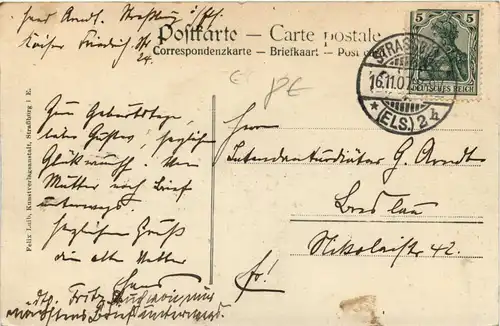 Hans Arndt. Straßburg i/Els.
Kaiser Friedrich Str
24.
Postkarte – Carte postale
Correspondenzkarte – Briefkaart – Post
5 5
DEUTSCHES REICH
STRASSBURG
16.11.07
* (ELS.) 2 *
PE
Felix Luib, Kunstverlagsanstalt, Straßburg i. E.
Zum Geburtstage,
lieber Gustav, herzlichen
Glückwunsch! Von
Mutter noch Brief
unterwegs.
Herzlichen Gruß
dein alter Vetter
Hans
Fritz
Brief unterwegs.
Herrn
Intendanturdiätar G. Arndt
Breslau
Nikolaistr 42.
fr!